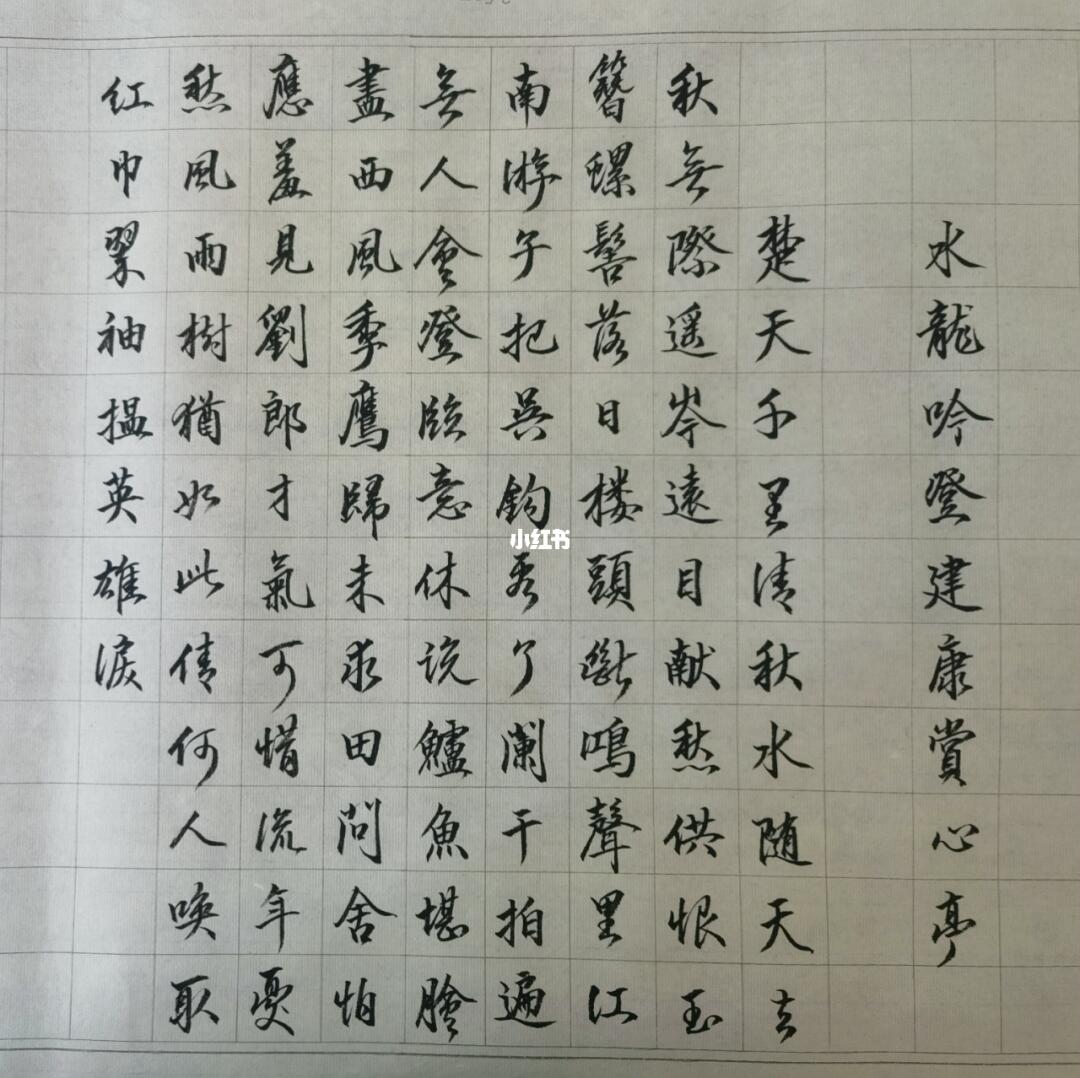 水龍吟登建康賞心亭
楚天千里清秋水随天去
秋無際遥岑遠目献愁供恨玉
簪螺髻落日楼頭斷鳴聲里江
南游子把吴鈎看了闌干拍遍
無人會登臨意休说鱸魚堪膾
盡西風季鷹歸未求田問舍怕
應羞見劉郎才氣可惜流年憂
愁風雨樹猶如此倩何人唤取
红巾翠袖揾英雄淚
小红书